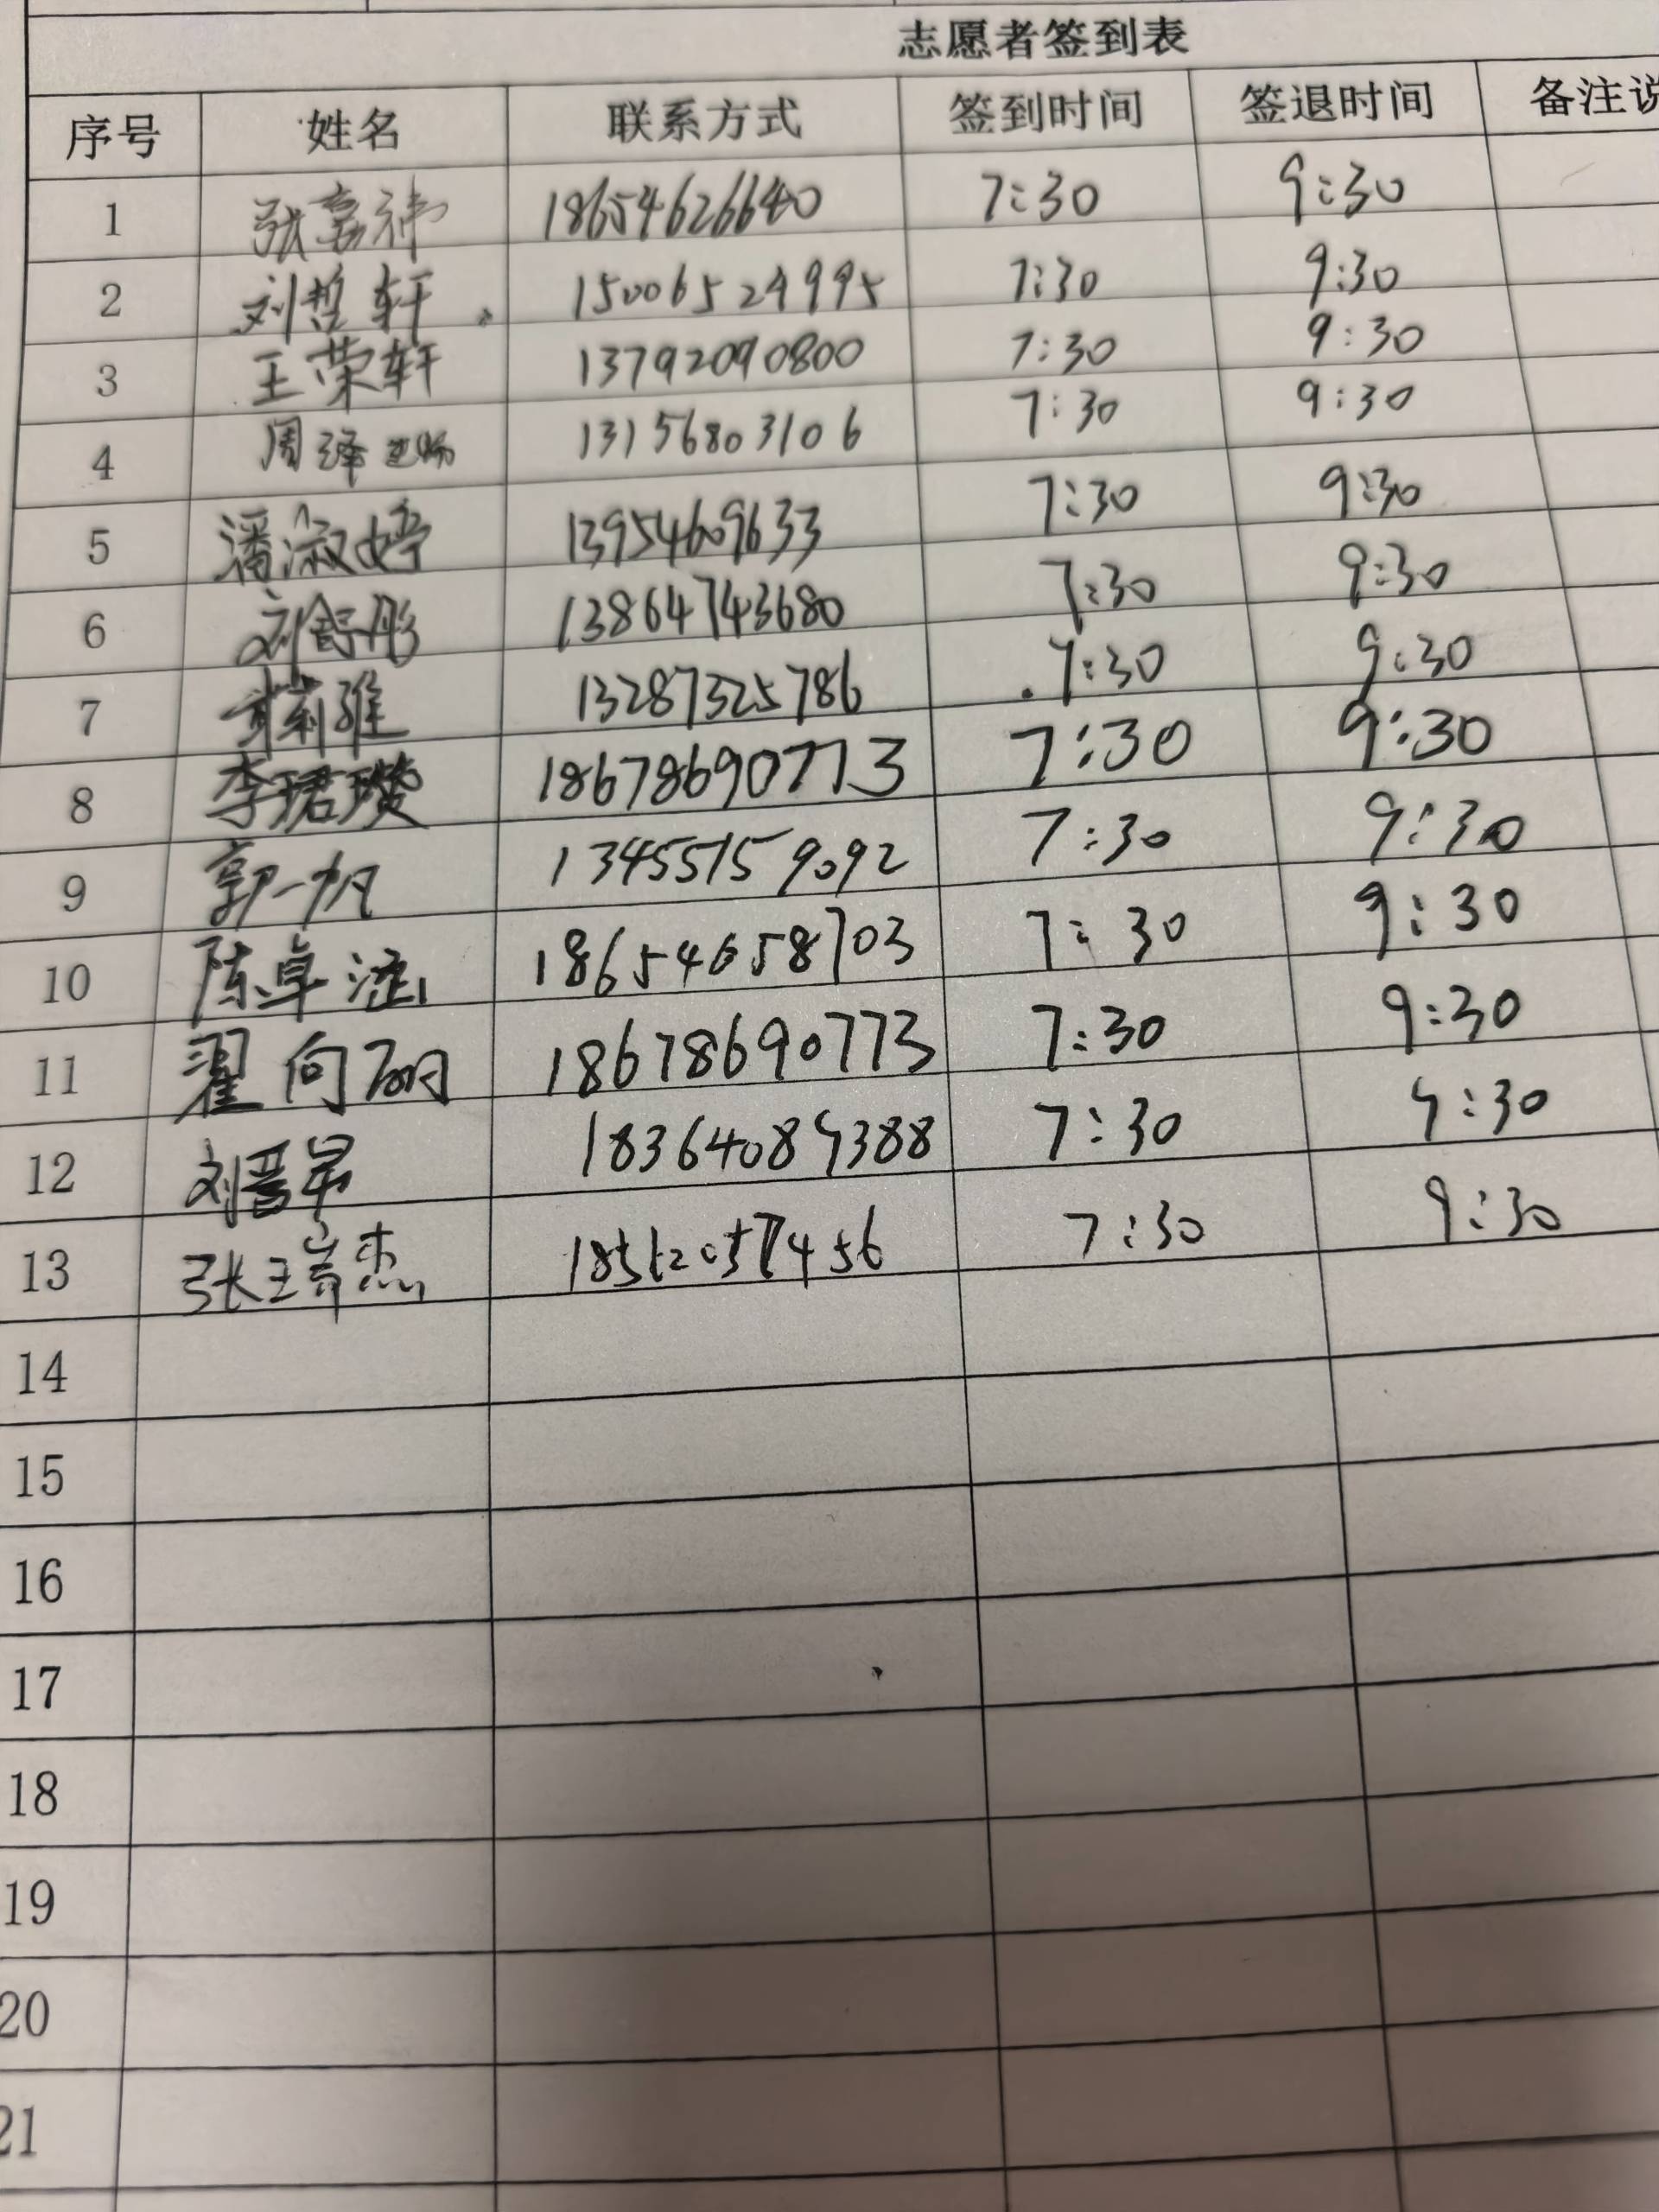 志愿者签到表
序号 姓名 联系方式 签到时间 签退时间 备注说
1 张嘉祎 18654626640 7:30 9:30
2 刘哲轩 15006524995 7:30 9:30
3 王荣轩 13792090800 7:30 9:30
4 周泽 13156803106 7:30 9:30
5 潘淑婷 13954609633 7:30 9:30
6 刘舒彤 13864743680 7:30 9:30
7 13287325786 7:30 9:30
8 李珺瓔 18678690773 7:30 9:30
9 郭一帆 13455159092 7:30 9:30
10 陈卓涵 18654658703 7:30 9:30
11 翟向 18678690773 7:30 9:30
12 刘 18364089388 7:30 9:30
13 张 7:30 9:30
14
15
16
17
18
19
20
21